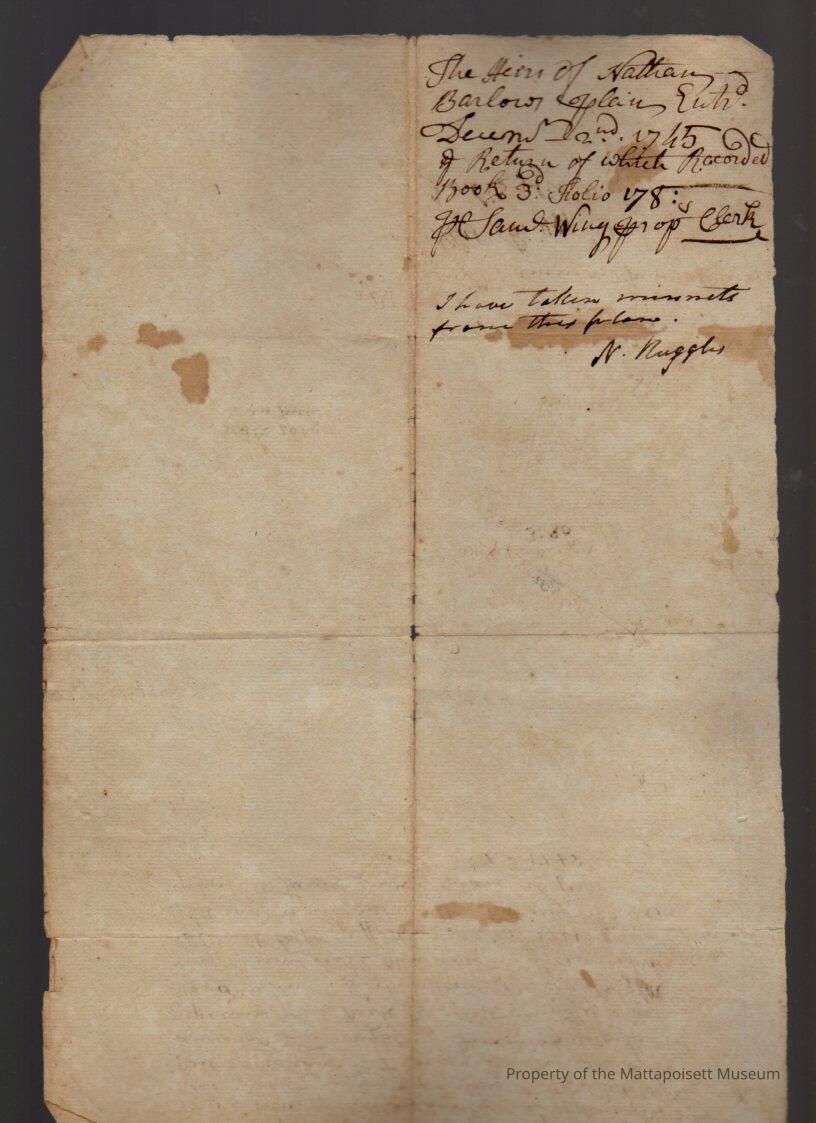 The Heirs of Nathan
Barlows plain Entrd.
Decemr. 2nd. 1745
& Return of which Recorded
Book 3d: Folio 178:
Pr Saml. Wing prop.s Clerk
I have taken minnets
from this plane.
N. Ruggles
Property of the Mattapoisett Museum